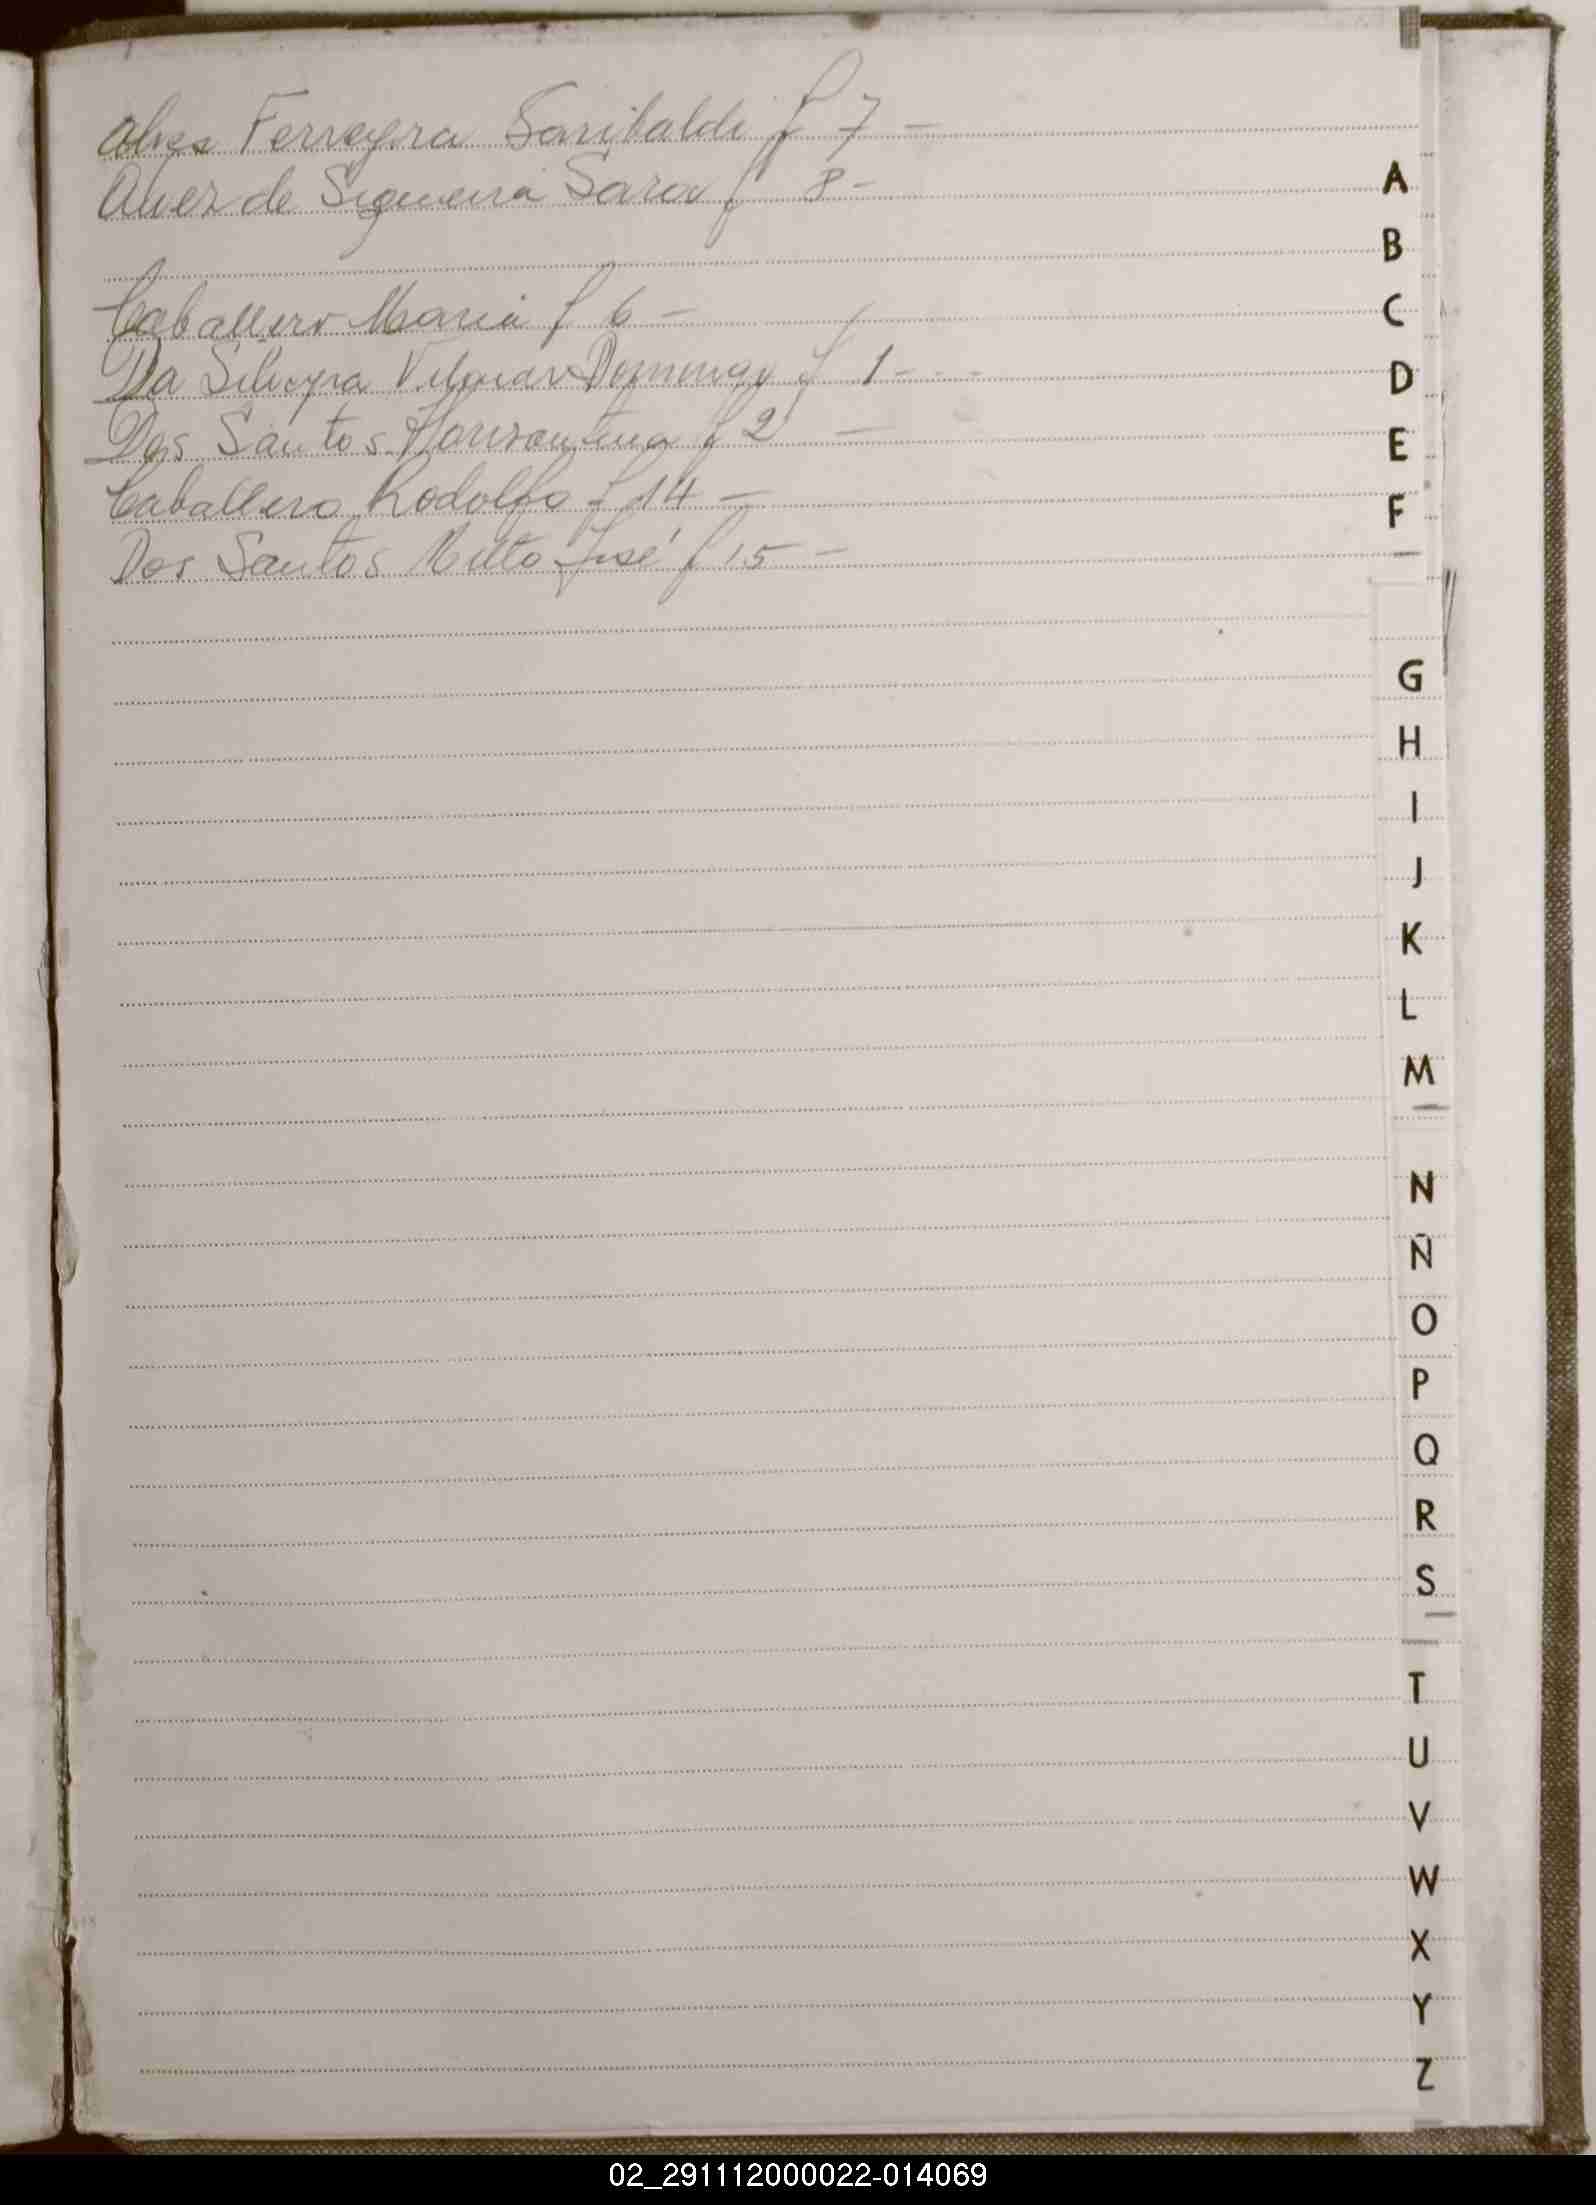 Alves Ferreyra Garibaldi f 7 -
Alvez de Sigueira Sara f 8 -
Caballero Maria f 6 -
Da Silveyra Domingo f 1 - - - -
Dos Santos f 2 -
Caballero Rodolfo f 14 -
Dos Santos José f 15 -
A
B
C
D
E
F
G
H
I
J
K
L
M
N
Ñ
O
P
Q
R
S
T
U
V
W
X
Y
Z
02_291112000022-014069